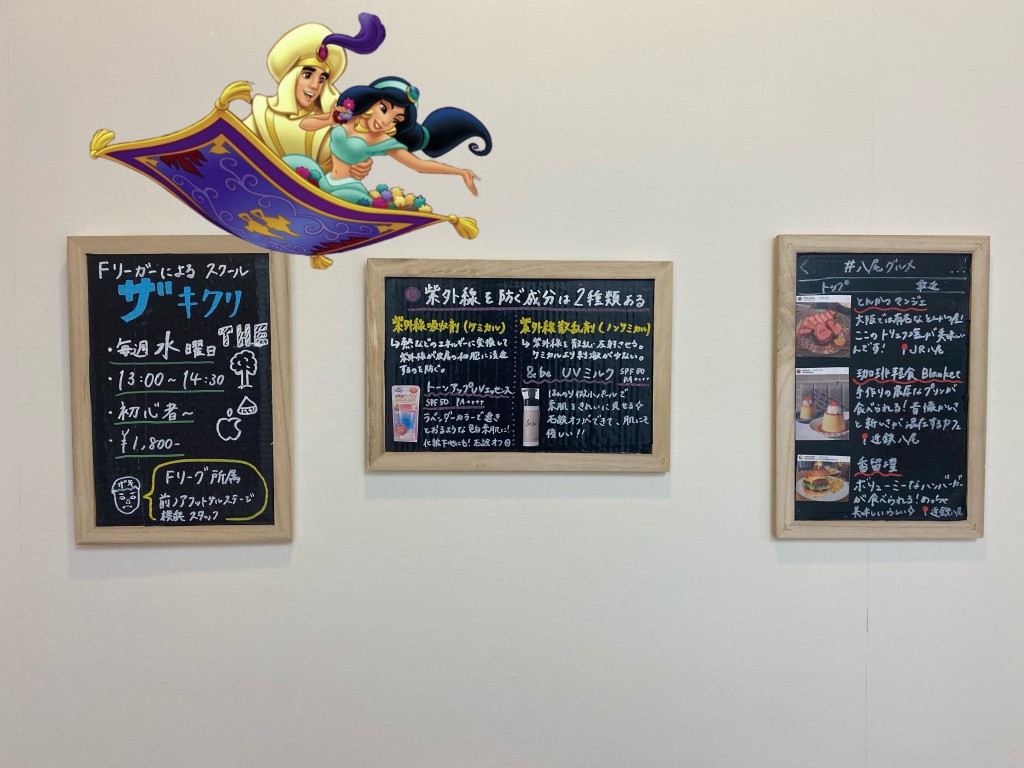 Fリーガーによる スクール
ザキクリ
THE
・毎週 水 曜日
・13:00~14:30
・初心者~
・¥1,800-
ザキ
Fリーグ 所属
前ノアフットサルステージ
横浜 スタッフ
紫外線を防ぐ成分は2種類ある
紫外線吸収剤(ケミカル)
↳熱などのエネルギーに変換して
紫外線が皮膚の細胞に浸透
するのを防ぐ。
トーンアップUVエッセンス
SPF50 PA++++
ラベンダーカラーで透き
とおるような色白素肌に!
化粧下地にも!石鹸オフ◎
紫外線散乱剤(ノンケミカル)
↳紫外線を散乱・反射させる。
ケミカルより刺激が少ない。
&be UVミルク
SPF50
PA++++
ほんのり微小パールで
素肌をきれいに見せる☆
石鹸オフができて、肌にも
優しい!!
&be
< #八尾グルメ ...
トップ 最近
とんかつ マンジェ
大阪では有名なとんかつ屋!
ここのトリュフ塩が美味しい
んです! JR八尾
珈琲軽食 Blanket
手作りの濃厚なプリンが
食べられる!昔懐かしさ
と新しさが混在するカフェ
近鉄八尾
香留壇
ボリューミーなハンバーガー
が食べられる!めっちゃ
美味しいらしい☆ 近鉄八尾